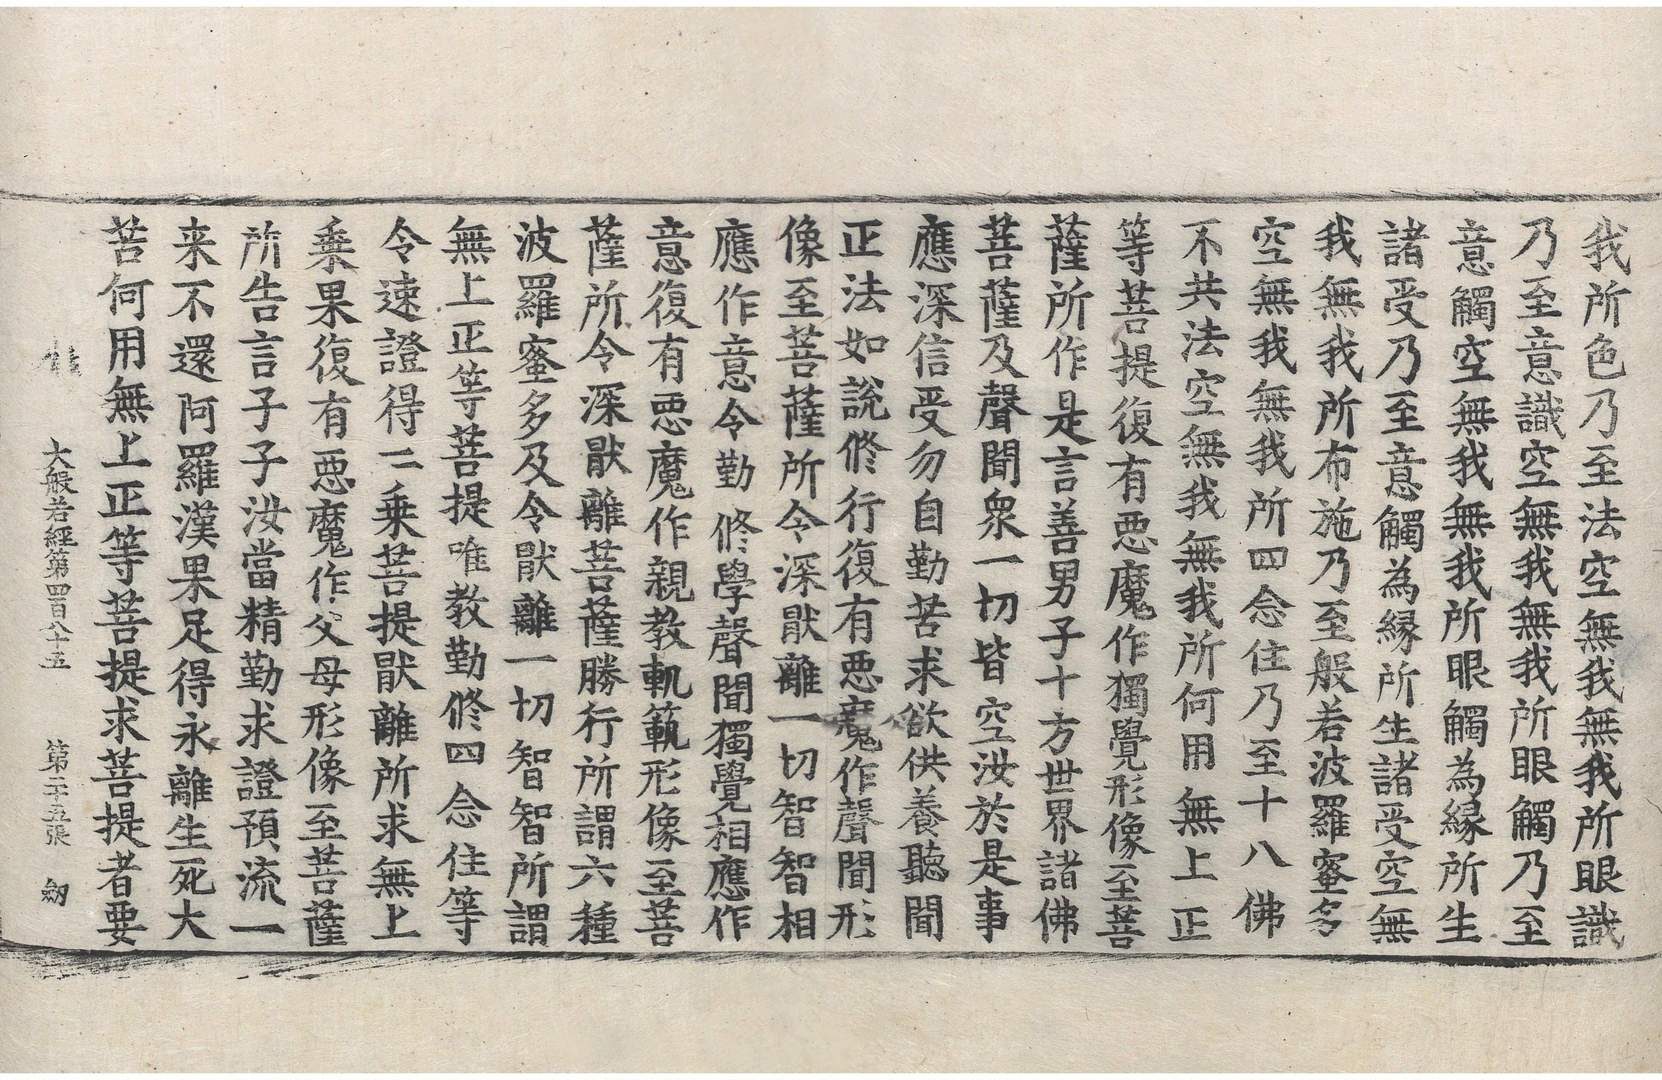 我所色乃至法空無我無我所眼識
乃至意識空無我無我所眼觸乃至
意觸空無我無我所眼觸為縁所生
諸受乃至意觸為縁所生諸受空無
我無我所布施乃至般若波羅蜜多
空無我無我所四念住乃至十八佛
不共法空無我無我所何用無上正
等菩提復有惡魔作獨覺形像至菩
薩所作是言善男子十方世界諸佛
菩薩及聲聞眾一切皆空汝於是事
應深信受勿自勤苦求欲供養聽聞
正法如說修行復有惡魔作聲聞形
像至菩薩所令深猒離一切智智相
應作意令勤修學聲聞獨覺相應作
意復有惡魔作親教軌範形像至菩
薩所令深猒離菩薩勝行所謂六種
波羅蜜多及令猒離一切智智所謂
無上正等菩提唯教勤修四念住等
令速證得二乗菩提猒離所求無上
乗果復有惡魔作父母形像至菩薩
所告言子子汝當精勤求證預流一
来不還阿羅漢果足得永離生死大
苦何用無上正等菩提求菩提者要
大般若經第四百八十五 第二十五張 劒